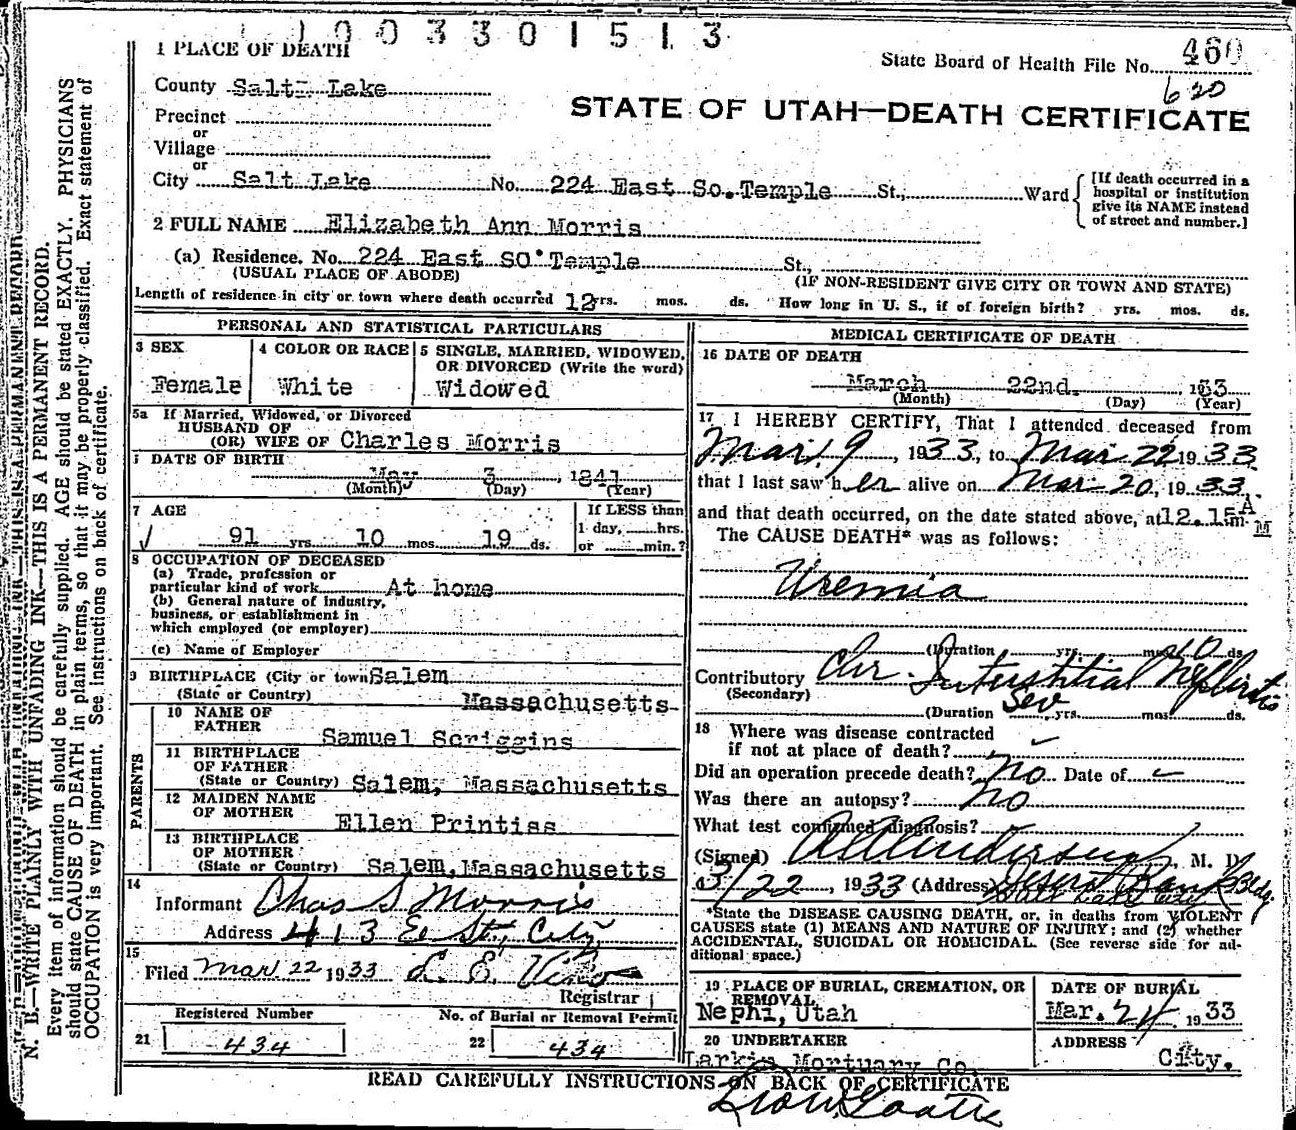 1003301513
1 PLACE OF DEATH
State Board of Health File No. 460
620
County Salt Lake
STATE OF UTAH—DEATH CERTIFICATE
Precinct
or
Village
or
City Salt Lake No. 224 East So. Temple St., Ward
[If death occurred in a
hospital or institution
give its NAME instead
of street and number.]
2 FULL NAME Elizabeth Ann Morris
(a) Residence. No. 224 East SO. Temple St.,
(USUAL PLACE OF ABODE) (IF NON-RESIDENT GIVE CITY OR TOWN AND STATE)
Length of residence in city or town where death occurred 12 yrs. mos. ds. How long in U. S., if of foreign birth? yrs. mos. ds.
PERSONAL AND STATISTICAL PARTICULARS
3 SEX
Female
4 COLOR OR RACE
White
5 SINGLE, MARRIED, WIDOWED,
OR DIVORCED (Write the word)
Widowed
5a If Married, Widowed, or Divorced
HUSBAND OF
(OR) WIFE OF Charles Morris
DATE OF BIRTH
May 3, 1841
(Month) (Day) (Year)
7 AGE
91 yrs. 10 mos. 19 ds.
If LESS than
1 day, hrs.
or min.?
8 OCCUPATION OF DECEASED
(a) Trade, profession or
particular kind of work At home
(b) General nature of industry,
business, or establishment in
which employed (or employer)
(c) Name of Employer
9 BIRTHPLACE (City or town) Salem
(State or Country) Massachusetts
PARENTS
10 NAME OF
FATHER Samuel Scriggins
11 BIRTHPLACE
OF FATHER
(State or Country) Salem, Massachusetts
12 MAIDEN NAME
OF MOTHER Ellen Printiss
13 BIRTHPLACE
OF MOTHER
(State or Country) Salem, Massachusetts
14
Informant Chas S Morris
Address 413 E St., City
15
Filed Mar 22 1933
Registrar
Registered Number
21 434
No. of Burial or Removal Permit
22 434
MEDICAL CERTIFICATE OF DEATH
16 DATE OF DEATH
March 22nd., 133
(Month) (Day) (Year)
17 I HEREBY CERTIFY, That I attended deceased from
Mar. 9, 1933, to Mar 22 1933
that I last saw her alive on Mar 20, 1933
and that death occurred, on the date stated above, at 12.15 A m. M
The CAUSE DEATH* was as follows:
Uremia
(Duration yrs. mos. 10 ds.
Contributory Chr. Interstitial Nephritis
(Secondary)
(Duration Sev yrs. mos. ds.
18 Where was disease contracted
if not at place of death?
Did an operation precede death? No Date of
Was there an autopsy? No
What test confirmed diagnosis?
(Signed) M. D.
3/22, 1933 (Address) Deseret Bank Bldg.
Salt Lake City
*State the DISEASE CAUSING DEATH, or, in deaths from VIOLENT
CAUSES state (1) MEANS AND NATURE OF INJURY; and (2) whether
ACCIDENTAL, SUICIDAL OR HOMICIDAL. (See reverse side for ad-
ditional space.)
19 PLACE OF BURIAL, CREMATION, OR
REMOVAL
Nephi, Utah
DATE OF BURIAL
Mar. 24 1933
20 UNDERTAKER
Larkin Mortuary Co.
ADDRESS
City.
READ CAREFULLY INSTRUCTIONS ON BACK OF CERTIFICATE
N. B.—WRITE PLAINLY WITH UNFADING INK—THIS IS A PERMANENT RECORD.
Every item of information should be carefully supplied. AGE should be stated EXACTLY. PHYSICIANS
should state CAUSE OF DEATH in plain terms, so that it may be properly classified. Exact statement of
OCCUPATION is very important. See instructions on back of certificate.